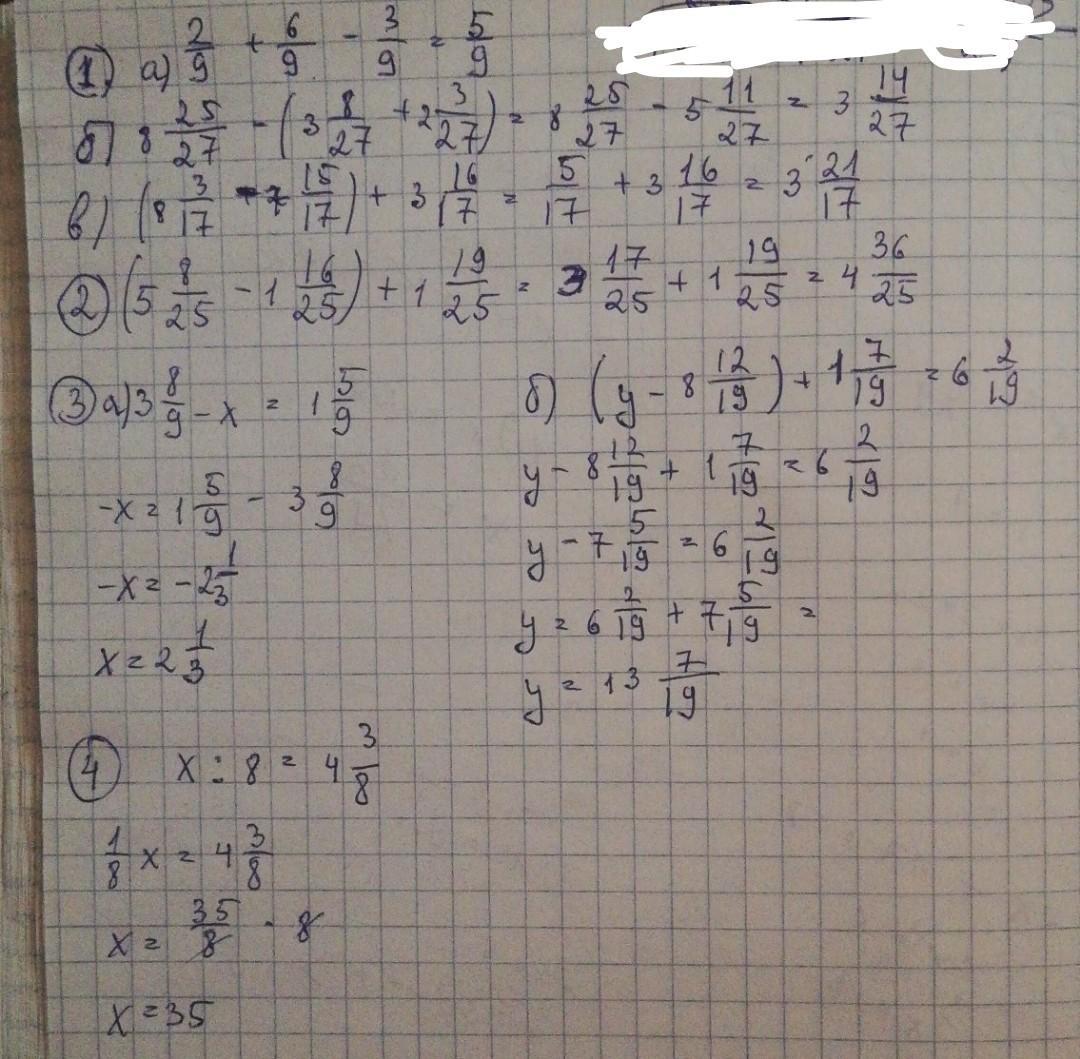 ① а) 2/9 + 6/9 - 3/9 = 5/9
б) 8 25/27 - (3 8/27 + 2 3/27) = 8 25/27 - 5 11/27 = 3 14/27
в) (8 3/17 - 7 15/17) + 3 16/17 = 5/17 + 3 16/17 = 3 21/17
② (5 8/25 - 1 16/25) + 1 19/25 = 3 17/25 + 1 19/25 = 4 36/25
③ а) 3 8/9 - x = 1 5/9
-x = 1 5/9 - 3 8/9
-x = -2 1/3
x = 2 1/3
б) (y - 8 12/19) + 1 7/19 = 6 2/19
y - 8 12/19 + 1 7/19 = 6 2/19
y - 7 5/19 = 6 2/19
y = 6 2/19 + 7 5/19 =
y = 13 7/19
④ x : 8 = 4 3/8
1/8 x = 4 3/8
x = 35/8 · 8
x = 35